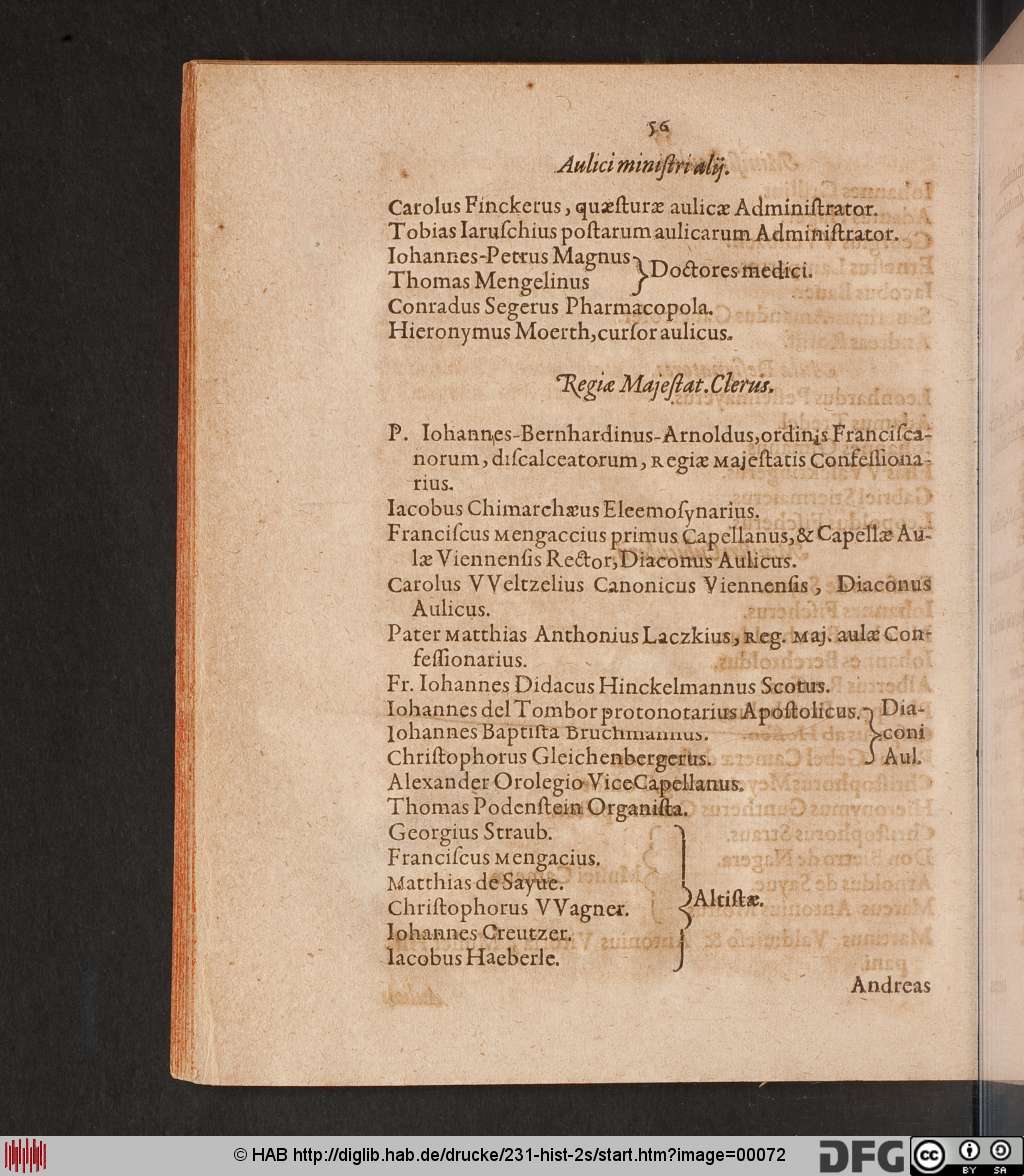 56
Aulici miniſtri alij.
Carolus Finckerus, quæſturæ aulicæ Adminiſtrator.
Tobias Iaruſchius poſtarum aulicarum Adminiſtrator.
Iohannes-Petrus Magnus
Thomas Mengelinus } Doctores medici.
Conradus Segerus Pharmacopola.
Hieronymus Moerth, curſor aulicus.
Regiæ Majeſtat. Clerus.
P. Iohannes-Bernhardinus-Arnoldus, ordinis Franciſca-
norum, diſcalceatorum, Regiæ Majeſtatis Confeſſiona-
rius.
Iacobus Chimarchæus Eleemoſynarius.
Franciſcus Mengaccius primus Capellanus, & Capellæ Au-
læ Viennenſis Rector, Diaconus Aulicus.
Carolus VVeltzelius Canonicus Viennenſis, Diaconus
Aulicus.
Pater Matthias Anthonius Laczkius, Reg. Maj. aulæ Con-
feſſionarius.
Fr. Iohannes Didacus Hinckelmannus Scotus.
Iohannes del Tombor protonotarius Apoſtolicus. } Dia-
Iohannes Baptiſta Bruchmannus. } coni
Chriſtophorus Gleichenbergerus. } Aul.
Alexander Orolegio ViceCapellanus.
Thomas Podenſtein Organiſta.
Georgius Straub.
Franciſcus Mengacius.
Matthias de Sayue.
Chriſtophorus VVagner. } Altiſtæ.
Iohannes Creutzer.
Iacobus Haeberle.
Andreas
© HAB http://diglib.hab.de/drucke/231-hist-2s/start.htm?image=00072
DFG
cc BY SA